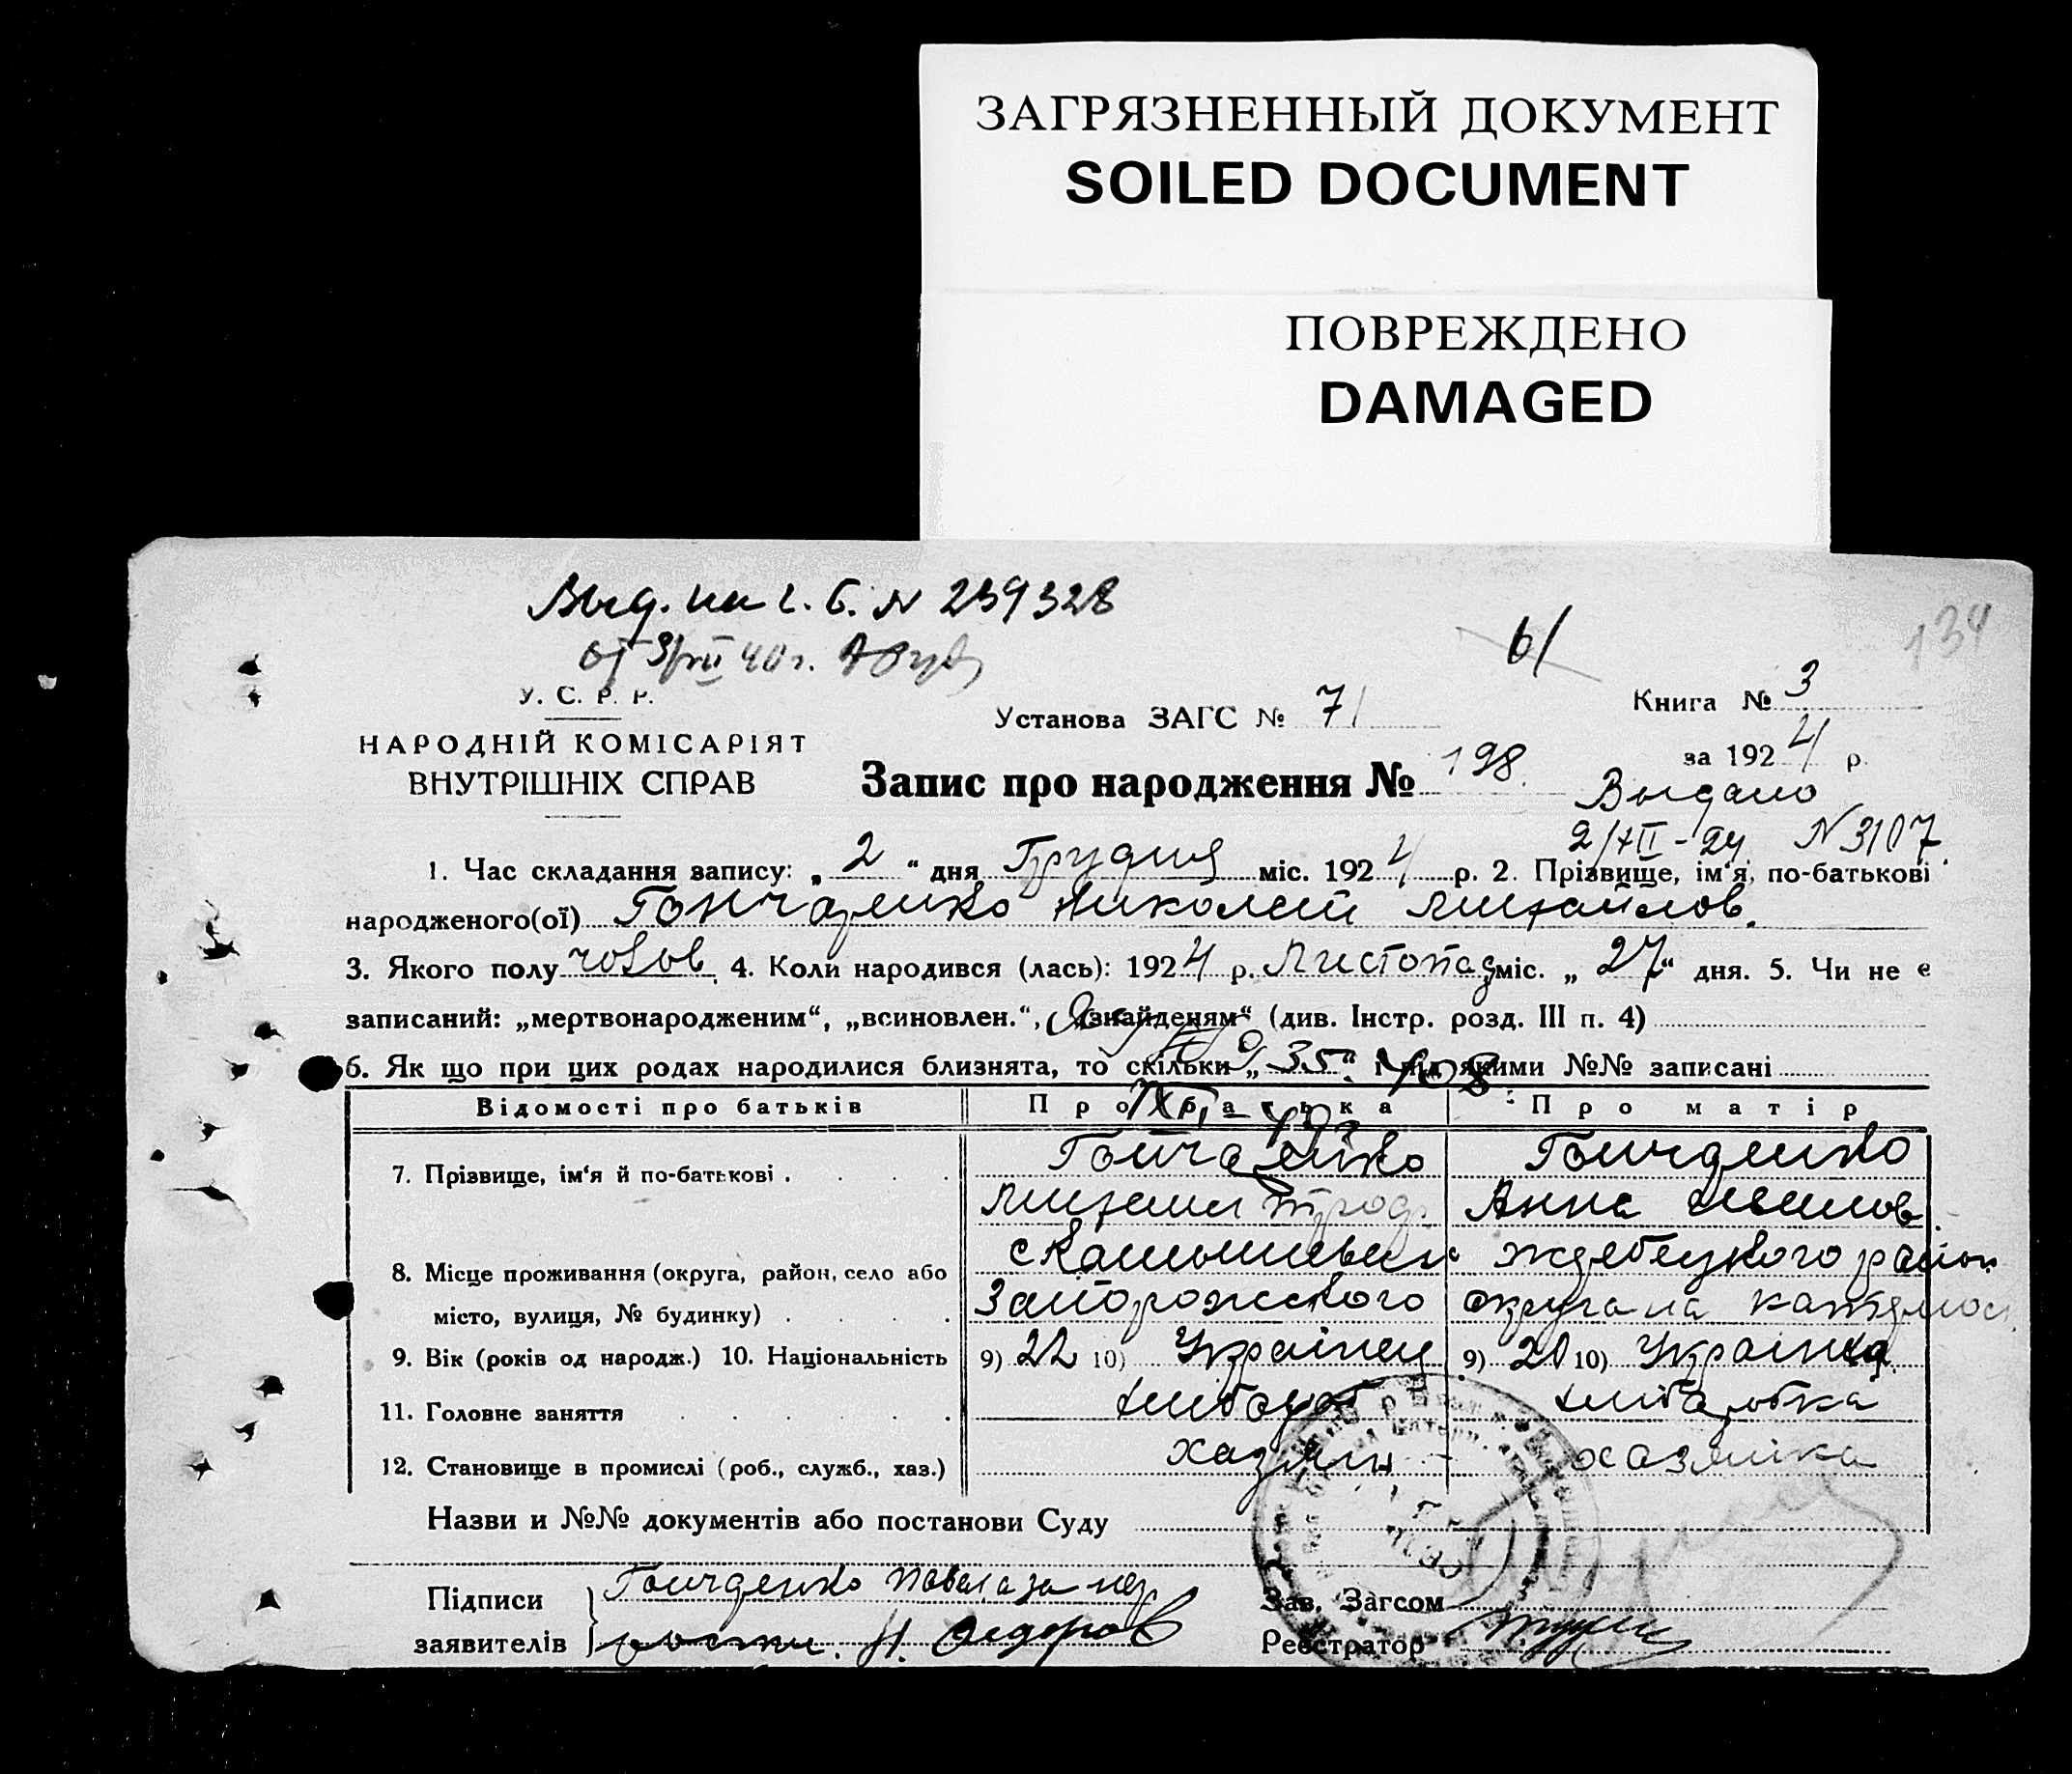 ЗАГРЯЗНЕННЫЙ ДОКУМЕНТ
SOILED DOCUMENT
ПОВРЕЖДЕНО
DAMAGED
N 239328
40 г.
134
У. С. Р. Р.
НАРОДНІЙ КОМІСАРІЯТ
ВНУТРІШНІХ СПРАВ
Установа ЗАГС № 71
Книга № 3
за 1924 р.
Запис про народження № 198.
Выдано
2/XII-24 N 3107.
1. Час складання запису: „2“ дня Грудня міс. 1924 р. 2. Прізвище, ім‘я, по-батькові
народженого(ої) Гончаренко Николай Михайлов.
3. Якого полу чолов. 4. Коли народився (лась): 1924 р. Листопад міс. „27“ дня. 5. Чи не є
записаний: „мертвонародженим“, „всиновлен.“, „знайденям“ (див. Інстр. розд. III п. 4)
6. Як що при цих родах народилися близнята, то скільки „ “ і під якими №№ записані
Відомості про батьків Про батька Про матір
7. Прізвище, ім‘я й по-батькові . Гончаренко Гончаренко
Михаил Анна
8. Місце проживання (округа, район, село або
місто, вулиця, № будинку) Запорожского
9. Вік (років од народж.) 10. Національність 9) 22 10) Українец 9) 20 10) Українка
11. Головне заняття хлібороб хліборобка
12. Становище в промислі (роб., служб., хаз.) хазяин хазяйка
Назви и №№ документів або постанови Суду
Підписи Гончаренко
заявителів Н. Федоров
Зав. Загсом
Реєстратор